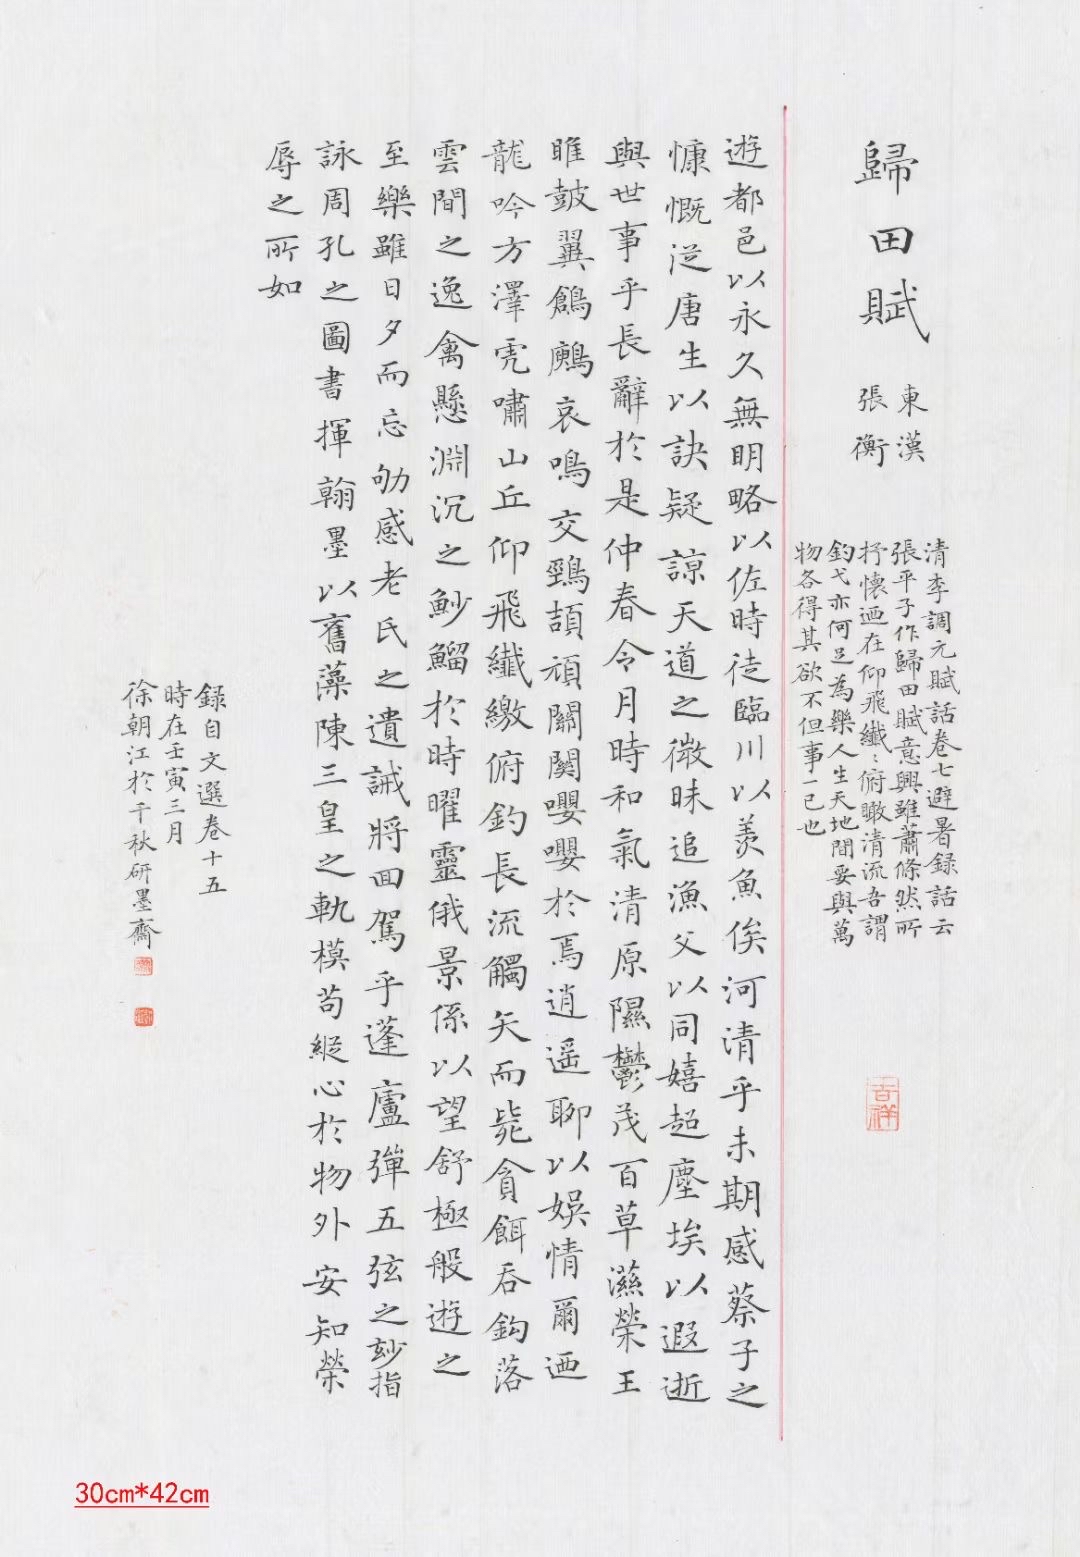 歸田賦
東漢
張衡
清李調元賦話卷七避暑録話云
張平子作歸田賦意興雖蕭條然所
抒懷迺在仰飛纖：俯瞰清流吾謂
釣弋亦何足為樂人生天地間要與萬
物各得其欲不但事一己也
遊都邑以永久無明略以佐時徒臨川以羨魚俟河清乎未期感蔡子之
慷慨從唐生以訣疑諒天道之微昧追漁父以同嬉超塵埃以遐逝
與世事乎長辭於是仲春令月時和氣清原隰鬱茂百草滋榮王
雎鼓翼鶬鶊哀鳴交頸頡頏關關嚶嚶於焉逍遥聊以娛情爾迺
龍吟方澤虎嘯山丘仰飛纖繳俯釣長流觸矢而斃貪餌吞鈎落
雲間之逸禽懸淵沉之魦鰡於時曜靈俄景係以望舒極般遊之
至樂雖日夕而忘劬感老氏之遺誡將回駕乎蓬廬彈五弦之妙指
詠周孔之圖書揮翰墨以奮藻陳三皇之軌模苟縱心於物外安知榮
辱之所如
録自文選卷十五
時在壬寅三月
徐朝江於千秋研墨齋
吉祥
30cm*42cm